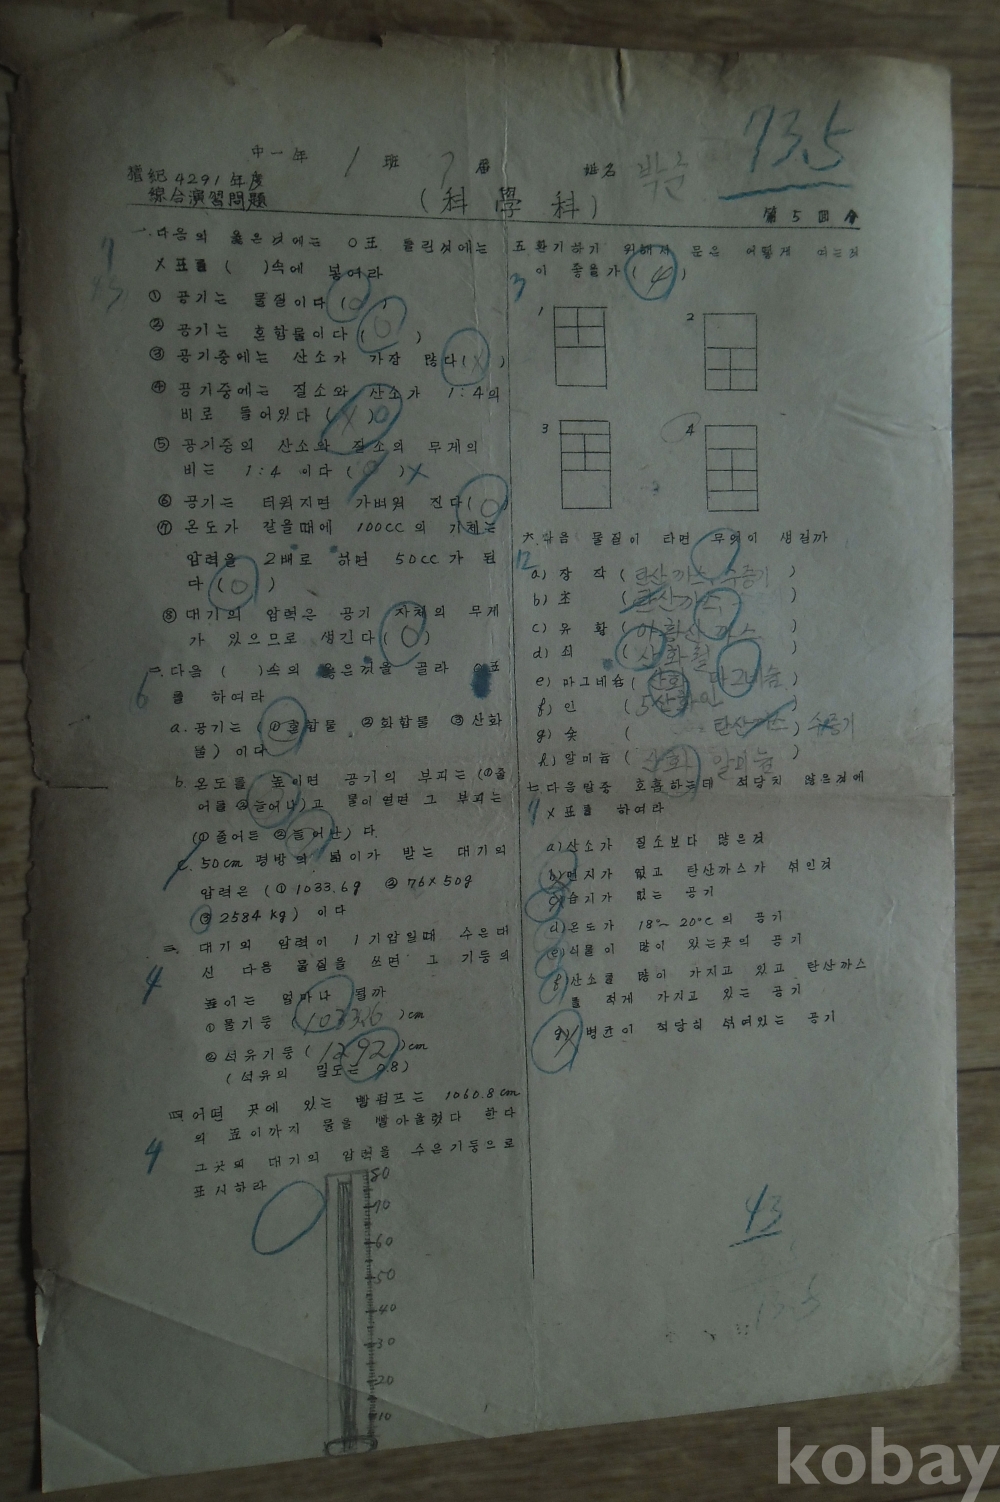 73.5
中一年 1 班 7 番 姓名 박
檀紀 4291年度
綜合演習問題
(科學科)
第5回分
一. 다음의 옳은것에는 O표 틀린것에는
X표를 ( )속에 넣어라
① 공기는 물질이다 (O)
② 공기는 혼합물이다 (O)
③ 공기중에는 산소가 가장 많다 (X)
④ 공기중에는 질소와 산소가 1:4의
비로 들어있다 (X) O
⑤ 공기중의 산소와 질소의 무게의
비는 1:4 이다 (O) X
⑥ 공기는 더워지면 가벼워 진다 (O)
⑦ 온도가 같을때에 100cc의 기체는
압력을 2배로 하면 50cc가 된
다 (O)
⑧ 대기의 압력은 공기 자체의 무게
가 있으므로 생긴다 (O)
6
二. 다음 ( )속의 옳은것을 골라 O표
를 하여라
a. 공기는 (①혼합물 ②화합물 ③산화
물) 이다
b. 온도를 높이면 공기의 부피는 (①줄
어를 ②늘어나)고 물이 얼면 그 부피는
(①줄어든 ②늘어난) 다.
c. 50cm 평방의 넓이가 받는 대기의
압력은 (① 1033.6g ② 76×50g
③ 2584 kg) 이다
4
三. 대기의 압력이 1기압일때 수은대
신 다음 물질을 쓰면 그 기둥의
높이는 얼마나 될까
① 물기둥 (1033.6)cm
② 석유기둥 (1292)cm
(석유의 밀도는 0.8)
4
四. 어떤 곳에 있는 빨펌프는 1060.8cm
의 높이까지 물을 빨아올렸다 한다
그곳의 대기의 압력을 수은기둥으로
표시하라
80
70
60
50
40
30
20
10
五. 환기하기 위해서 문은 어떻게 여는것
이 좋을가 (4)
3
1
2
3
4
六. 다음 물질이 타면 무엇이 생길까
12
a) 장작 (탄산까스, 수증기)
b) 초 (탄산까스)
c) 유황 (아황산까스)
d) 쇠 (산화철)
e) 마그네슘 (산화 마그네슘)
f) 인 (5산화인)
g) 숯 (탄산까스) 수증기
h) 알미늄 (산화 알미늄)
七. 다음 말중 호흡하는데 적당치 않은것에
X표를 하여라
a) 산소가 질소보다 많은것
b) 먼지가 없고 탄산까스가 섞인것
c) 습기가 없는 공기
d) 온도가 18°~20°C의 공기
e) 식물이 많이 있는곳의 공기
f) 산소를 많이 가지고 있고 탄산까스
를 적게 가지고 있는 공기
g) 병균이 적당히 섞여있는 공기
43
kobay